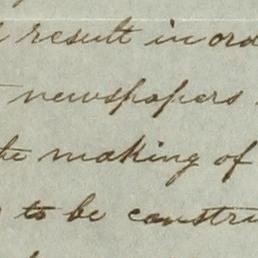 result in ord
newspapers
the making of
to be constru